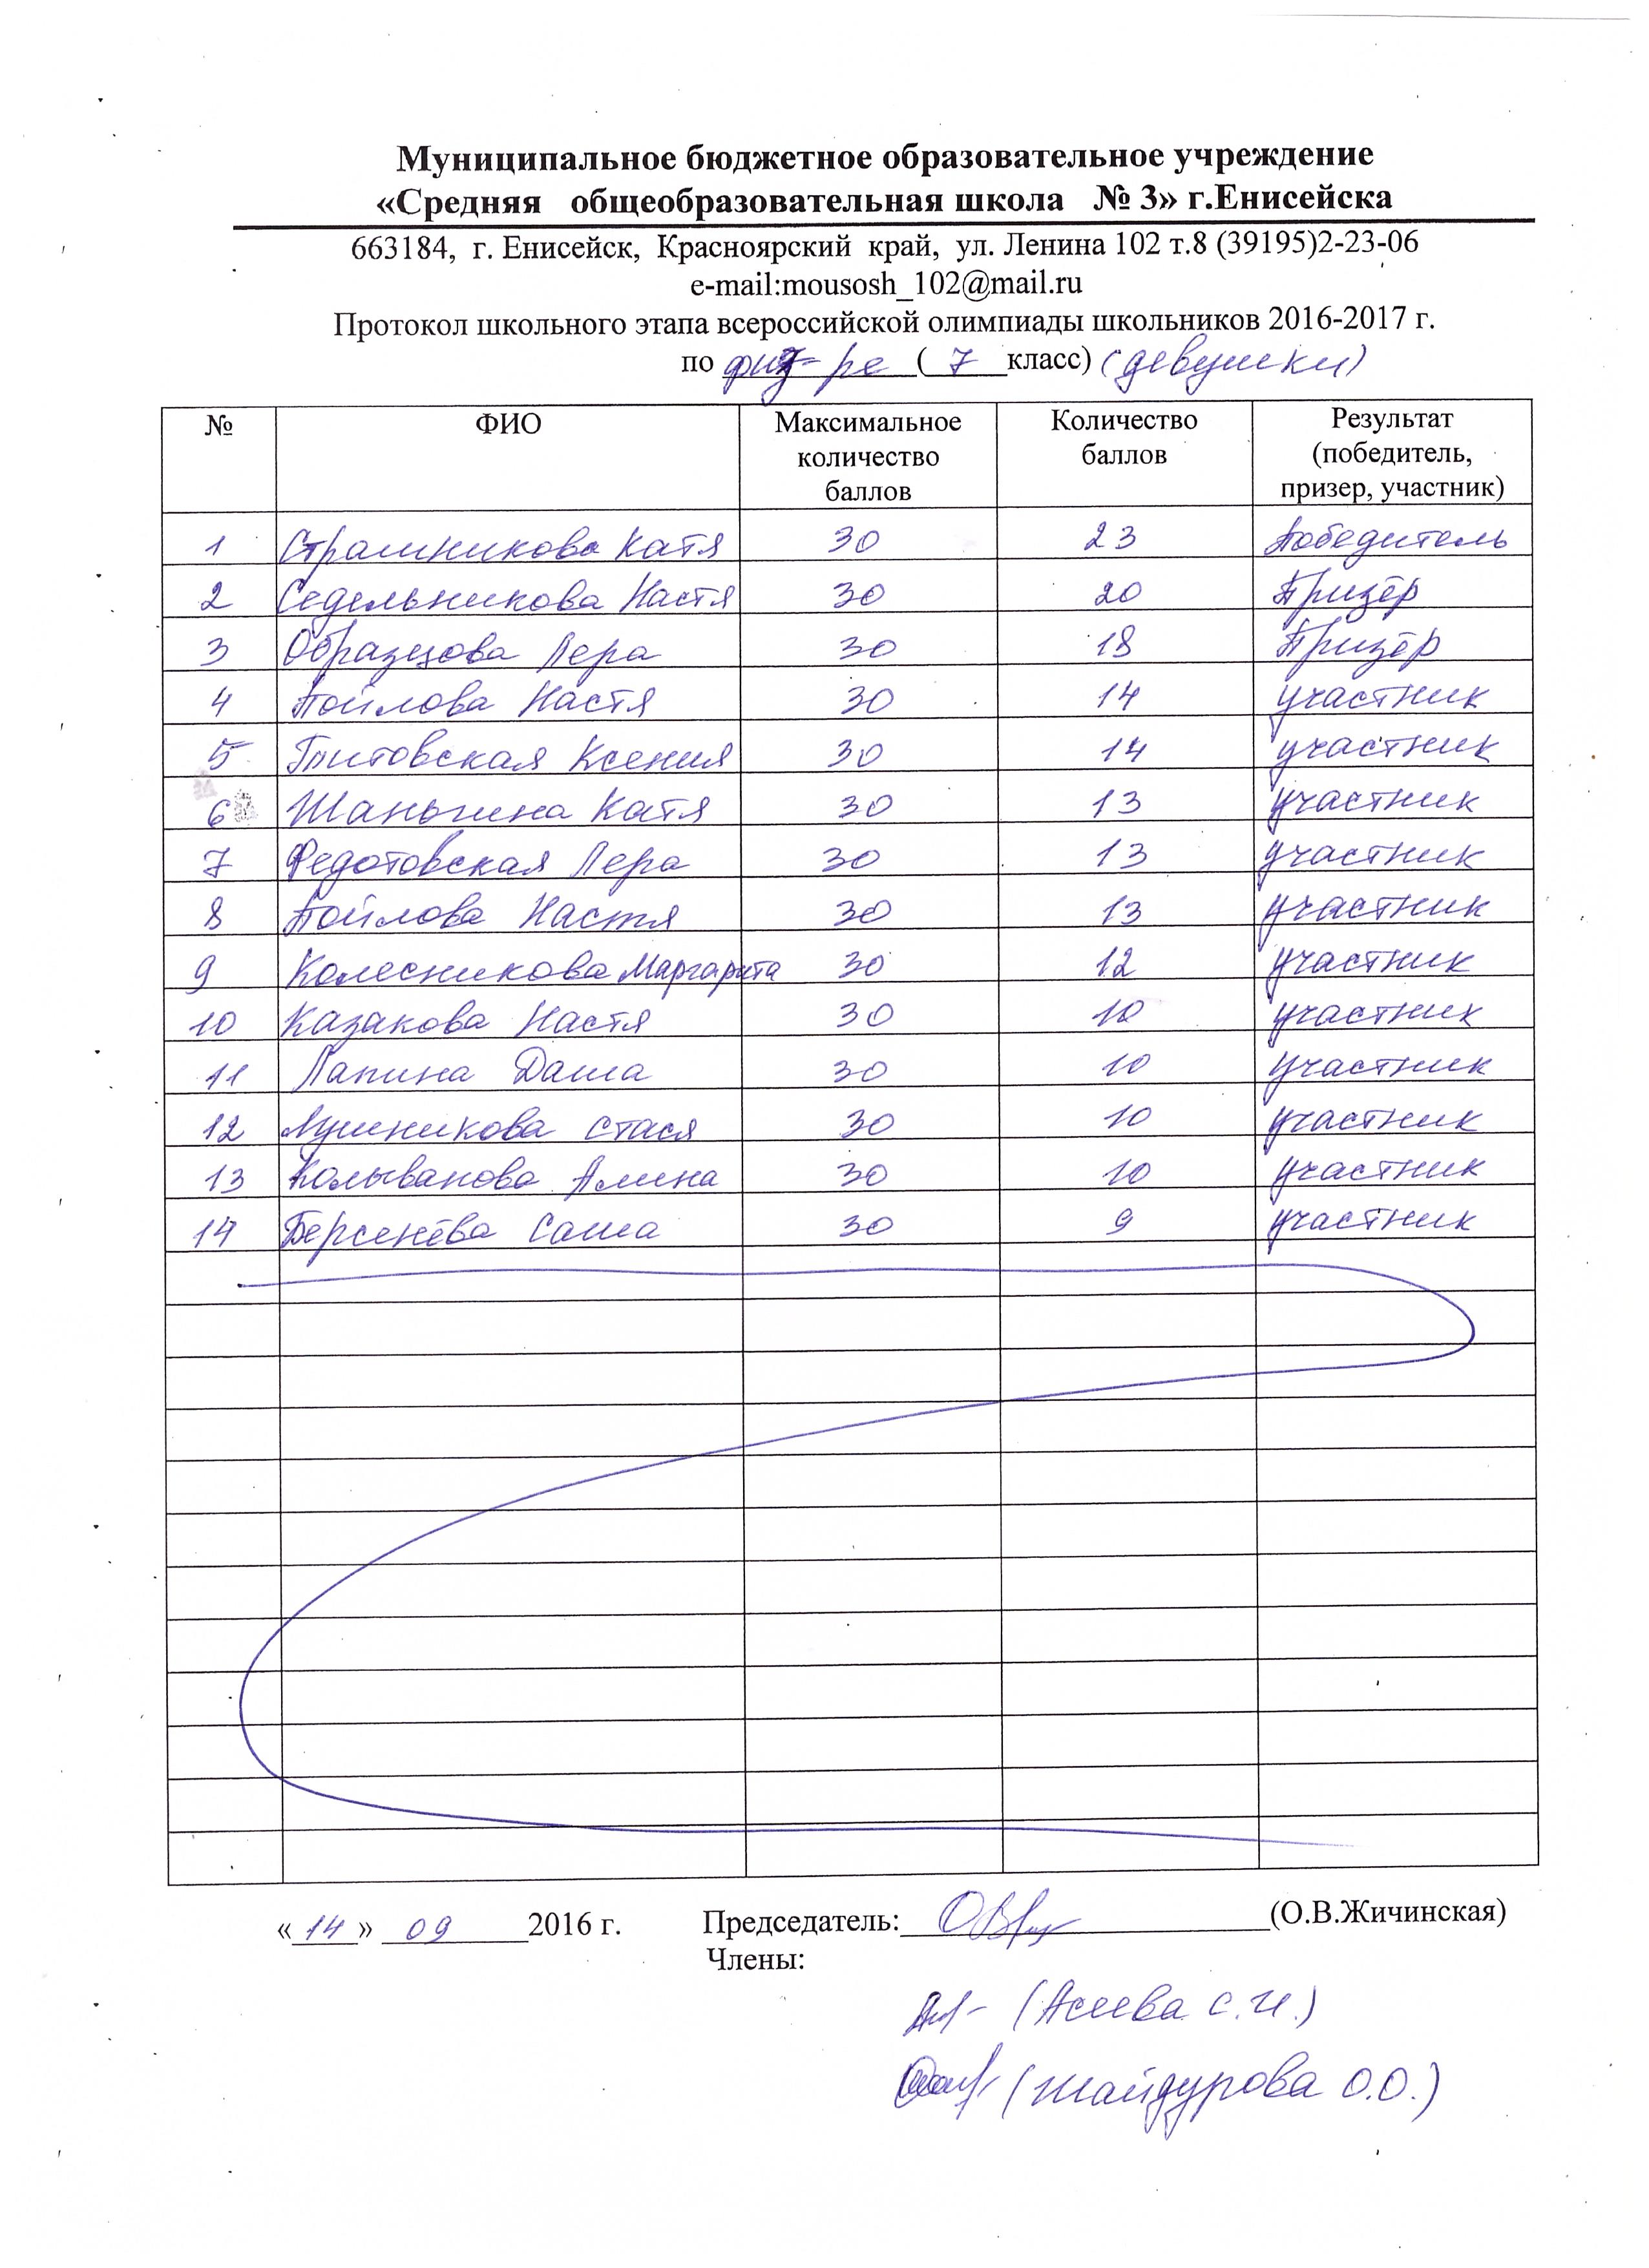 Муниципальное бюджетное образовательное учреждение
«Средняя общеобразовательная школа № 3» г.Енисейска
663184, г. Енисейск, Красноярский край, ул. Ленина 102 т.8 (39195)2-23-06
e-mail:mousosh_102@mail.ru
Протокол школьного этапа всероссийской олимпиады школьников 2016-2017 г.
по физ-ре ( 7 класс) (девушки)
№ ФИО Максимальное количество баллов Количество баллов Результат (победитель, призер, участник)
1 Катя 30 23 Победитель
2 Седельникова Настя 30 20 Призёр
3 Образцова Лера 30 18 Призёр
4 Пойлова Настя 30 14 участник
5 Ксения 30 14 участник
6 Шаньгина Катя 30 13 участник
7 Федотовская Лера 30 13 участник
8 Пойлова Настя 30 13 участник
9 Колесникова Маргарита 30 12 участник
10 Казакова Настя 30 10 участник
11 Лапина Даша 30 10 участник
12 Лушникова Стася 30 10 участник
13 Колыванова Алина 30 10 участник
14 Берсенёва Саша 30 9 участник
«14» 09 2016 г. Председатель: (О.В.Жичинская)
Члены:
(Асеева С.И.)
(Шайдурова О.О.)